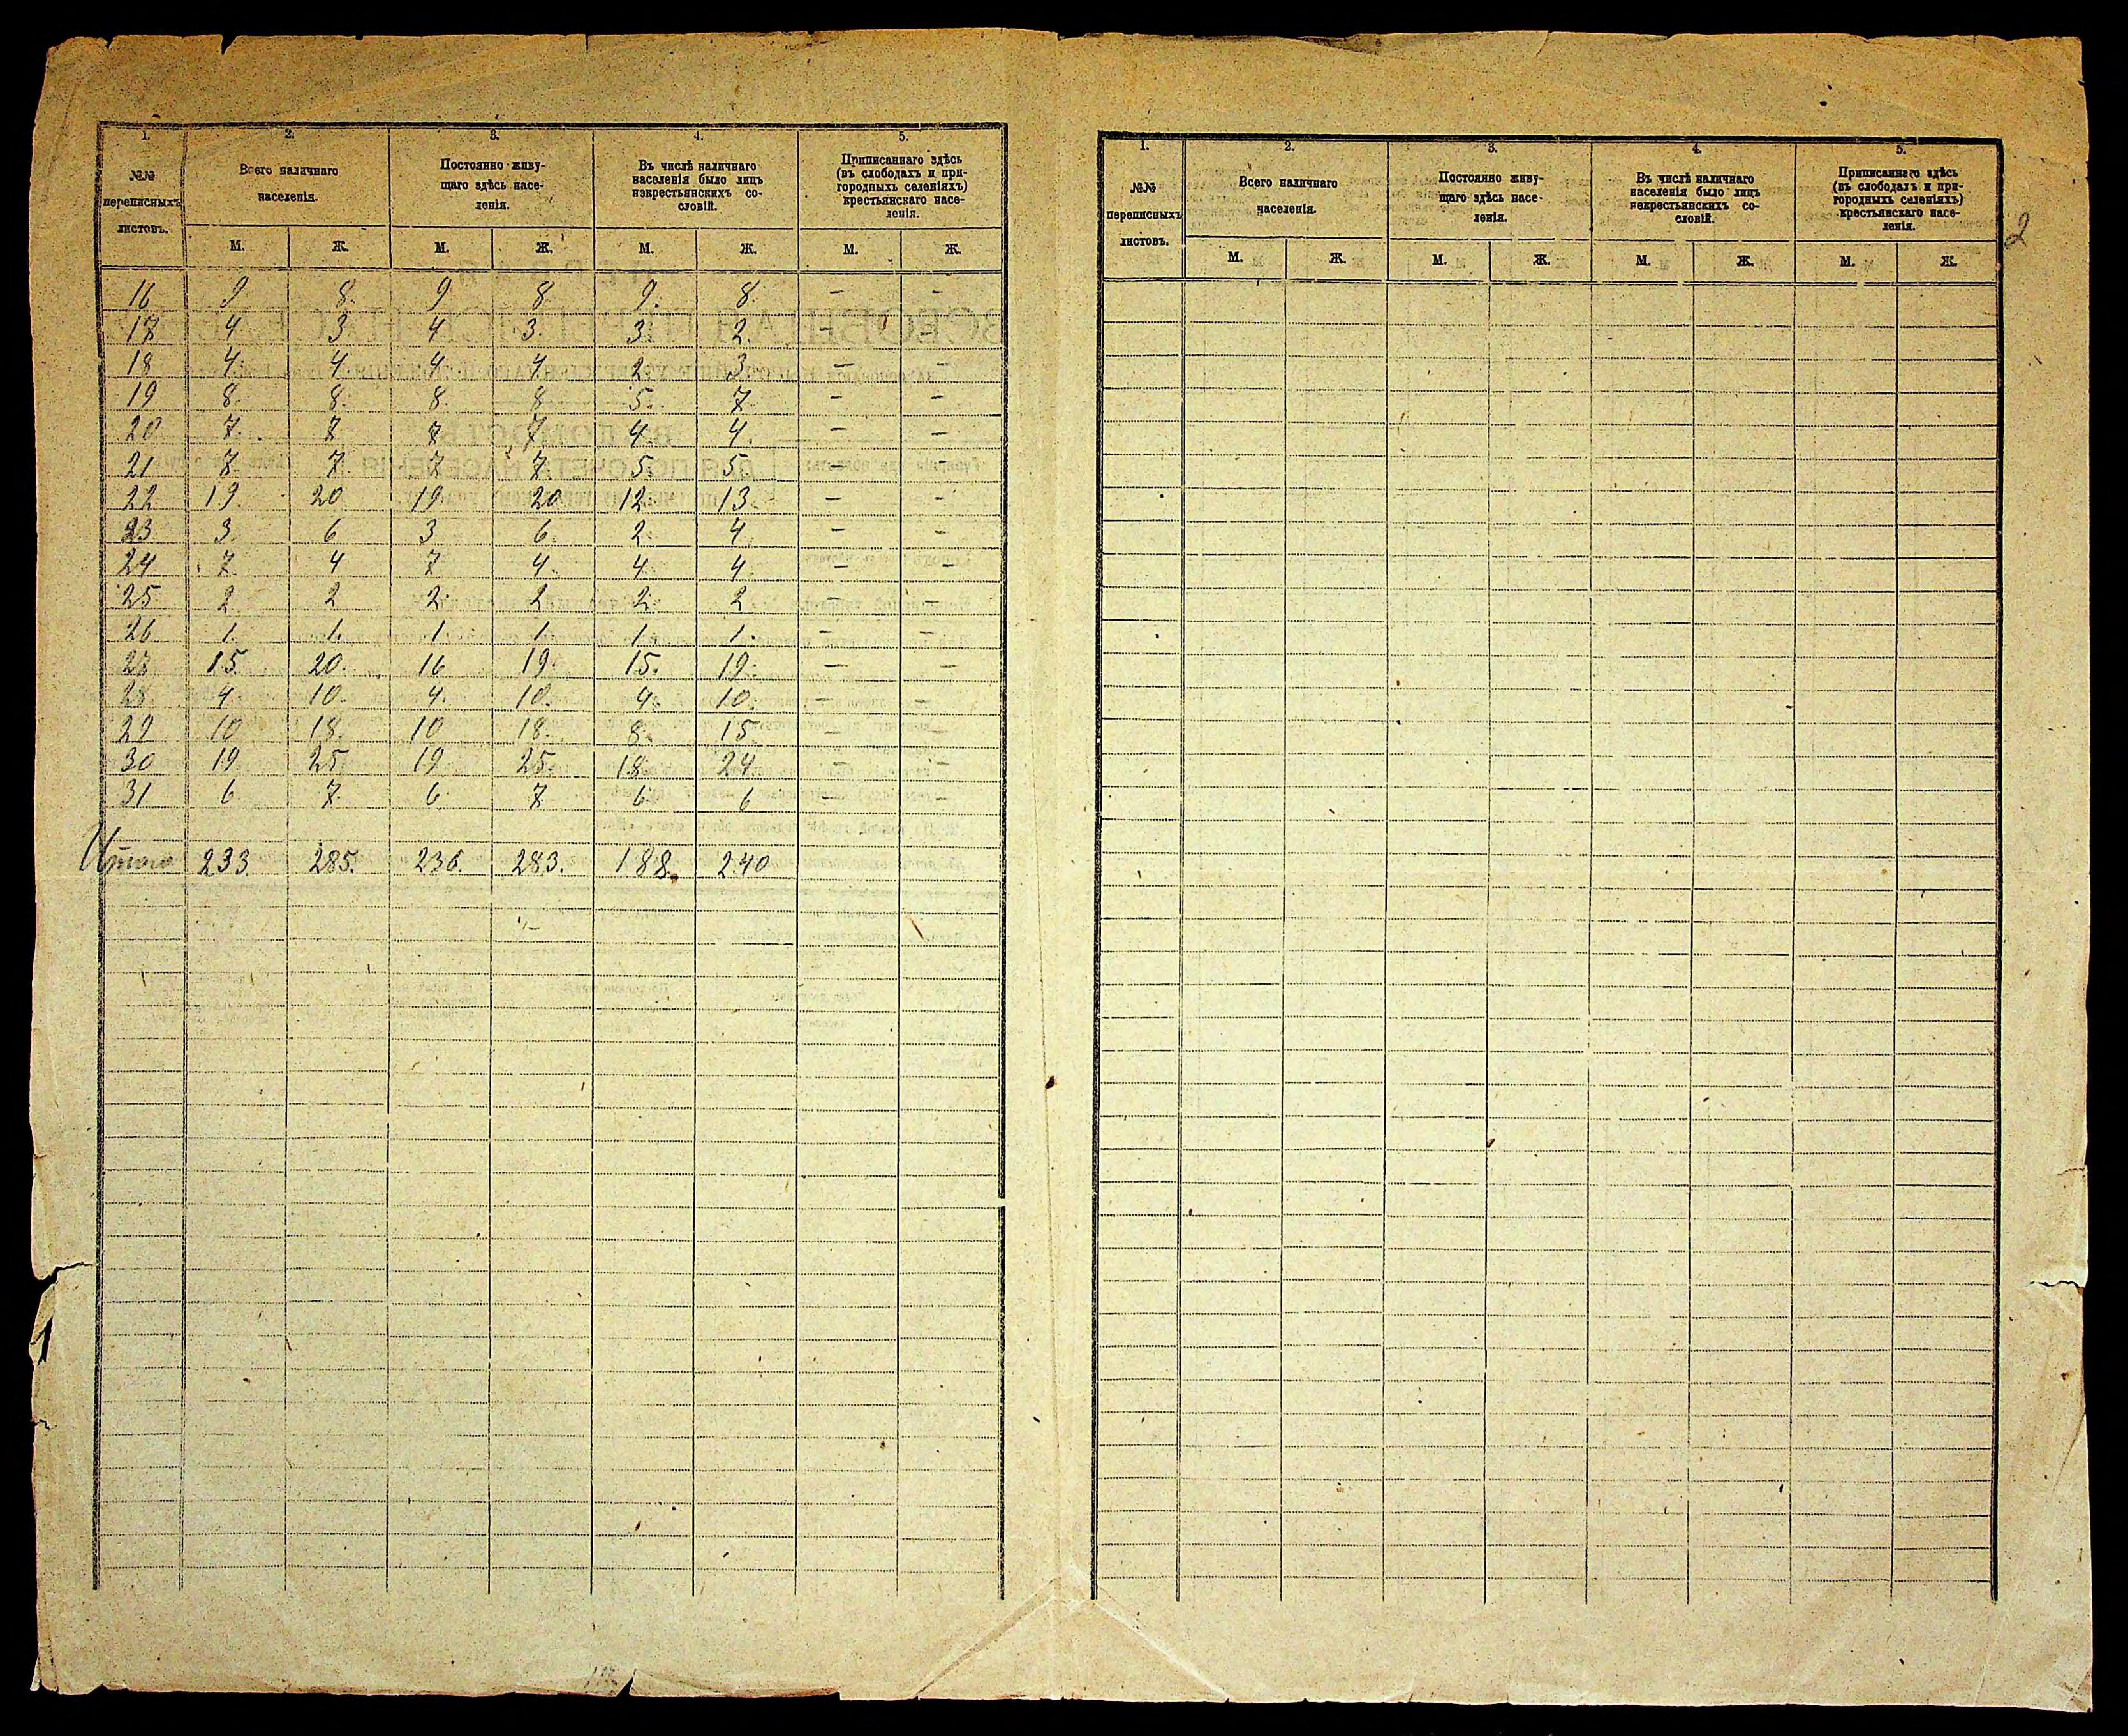 1. 2. 3. 4. 5.
№№ переписныхъ листовъ.
Всего наличнаго населенія.
Постоянно живу-
щаго здѣсь насе-
ленія.
Въ числѣ наличнаго
населенія было лицъ
некрестьянскихъ со-
словій.
Приписаннаго здѣсь
(въ слободахъ и при-
городныхъ селеніяхъ)
крестьянскаго насе-
ленія.
М. Ж. М. Ж. М. Ж. М. Ж.
16 9 8. 9 8 9. 8 – –
17 4. 3 4 3. 3. 2. – –
18 4. 4. 4. 4 2. 3. –
19 8. 8. 8. 8 5. 7 – –
20 7. 7 7 7. 4 4. – –
21 7. 7 7 7. 5. 5. – –
22 19. 20 19. 20 12. 13. – –
23 3. 6 3 6. 2. 4 – –
24 7. 4 7 4. 4. 4. – –
25 2. 2 2. 2 2. 2. – –
26 1. 1. 1. 1. 1. 1. – –
27 15. 20. 16 19. 15. 19. – –
28 4. 10. 4. 10. 4. 10. – –
29 10 18. 10 18. 8. 15 – –
30 19. 25 19 25. 18. 24. – –
31 6 7. 6. 7 6. 6 – –
Итого 233. 285. 236. 283. 188. 240
1. 2. 3. 4. 5.
№№ переписныхъ листовъ.
Всего наличнаго населенія.
Постоянно живу-
щаго здѣсь насе-
ленія.
Въ числѣ наличнаго
населенія было лицъ
некрестьянскихъ со-
словій.
Приписаннаго здѣсь
(въ слободахъ и при-
городныхъ селеніяхъ)
крестьянскаго насе-
ленія.
М. Ж. М. Ж. М. Ж. М. Ж.
2